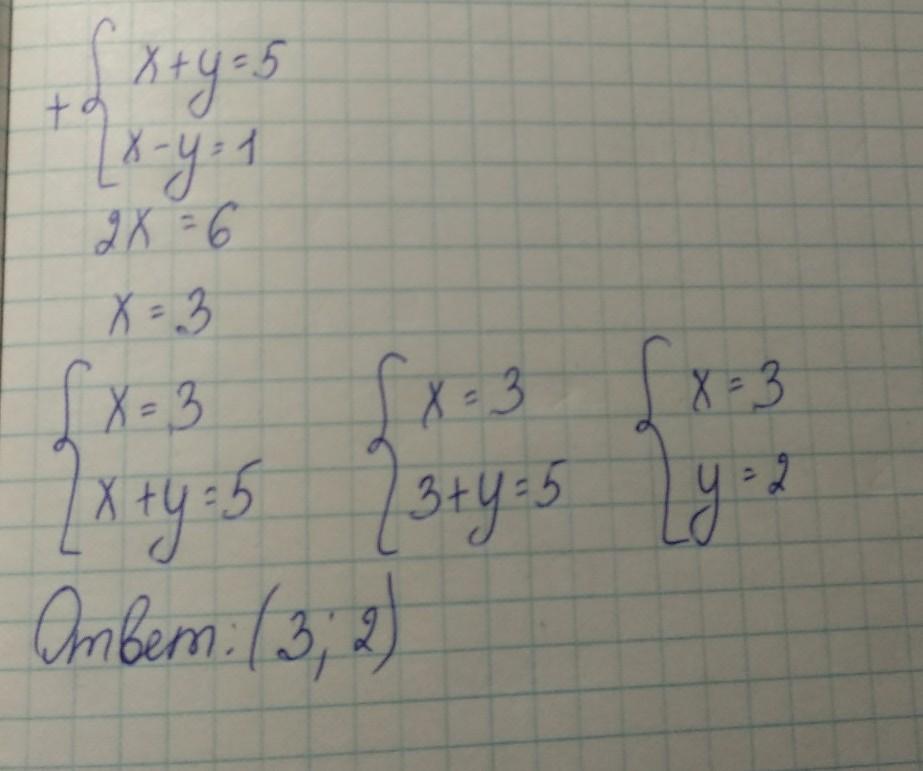 x+y=5
+
x-y=1
2x=6
x=3
x=3 x=3 x=3
x+y=5 3+y=5 y=2
Ответ: (3; 2)